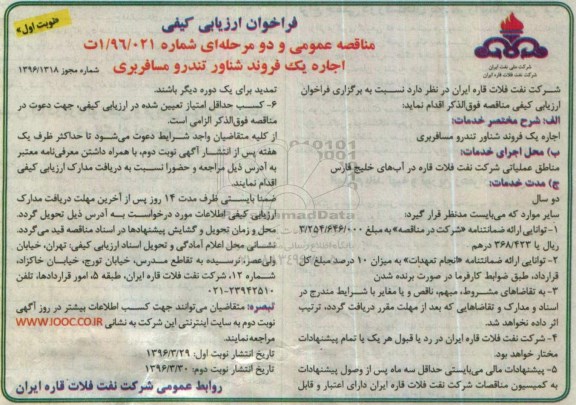 «نوبت اول»
فراخوان ارزیابی کیفی
مناقصه عمومی و دو مرحله‌ای شماره ۱/۹۶/۰۲۱ت
اجاره یک فروند شناور تندرو مسافربری
شماره مجوز ۱۳۹۶/۱۳۱۸
شرکت ملی نفت ایران
شرکت نفت فلات قاره ایران
شرکت نفت فلات قاره ایران در نظر دارد نسبت به برگزاری فراخوان
ارزیابی کیفی مناقصه فوق‌الذکر اقدام نماید:
الف: شرح مختصر خدمات:
اجاره یک فروند شناور تندرو مسافربری
ب) محل اجرای خدمات:
مناطق عملیاتی شرکت نفت فلات قاره در آب‌های خلیج فارس
ج) مدت خدمات:
دو سال
سایر موارد که می‌بایست مدنظر قرار گیرد:
۱- توانایی ارائه ضمانتنامه «شرکت در مناقصه» به مبلغ ۳/۲۵۴/۶۴۶/۰۰۰
ریال یا ۳۶۸/۴۲۳ درهم
۲- توانایی ارائه ضمانتنامه «انجام تعهدات» به میزان ۱۰ درصد مبلغ کل
قرارداد، طبق ضوابط کارفرما در صورت برنده شدن
۳- به تقاضاهای مشروط، مبهم، ناقص و یا مغایر با شرایط مندرج در
اسناد و مدارک و تقاضاهایی که بعد از مهلت مقرر دریافت گردد، ترتیب
اثر داده نخواهد شد.
۴- شرکت نفت فلات قاره ایران در رد یا قبول هر یک یا تمام پیشنهادات
مختار خواهد بود.
۵- پیشنهادات مالی می‌بایستی حداقل سه ماه پس از وصول پیشنهادات
به کمیسیون مناقصات شرکت نفت فلات قاره ایران دارای اعتبار و قابل
تمدید برای یک دوره دیگر باشند.
۶- کسب حداقل امتیاز تعیین شده در ارزیابی کیفی، جهت دعوت در
مناقصه فوق‌الذکر الزامی است.
از کلیه متقاضیان واجد شرایط دعوت می‌شود تا حداکثر ظرف یک
هفته پس از انتشار آگهی نوبت دوم، با همراه داشتن معرفی‌نامه معتبر
به آدرس ذیل مراجعه و حضورا نسبت به دریافت مدارک ارزیابی کیفی
اقدام نمایند.
ضمنا بایستی ظرف مدت ۱۴ روز پس از آخرین مهلت دریافت مدارک
ارزیابی کیفی اطلاعات مورد درخواست به آدرس ذیل تحویل گردد.
محل و زمان تحویل و گشایش پیشنهادها در اسناد مناقصه قید می‌گردد.
نشانی محل اعلام آمادگی و تحویل اسناد ارزیابی کیفی: تهران، خیابان
ولی‌عصر، نرسیده به تقاطع مدرس، خیابان تورج، خیابان خاکزاد،
شماره ۱۲، شرکت نفت فلات قاره ایران، طبقه ۵، امور قراردادها، تلفن
۰۲۱-۲۳۹۴۲۵۱۰
تبصره: متقاضیان می‌توانند جهت کسب اطلاعات بیشتر در روز آگهی
نوبت دوم به سایت اینترنتی این شرکت به نشانی WWW.IOOC.CO.IR
مراجعه نمایند.
تاریخ انتشار نوبت اول: ۱۳۹۶/۳/۲۹
تاریخ انتشار نوبت دوم: ۱۳۹۶/۳/۳۰
روابط عمومی شرکت نفت فلات قاره ایران